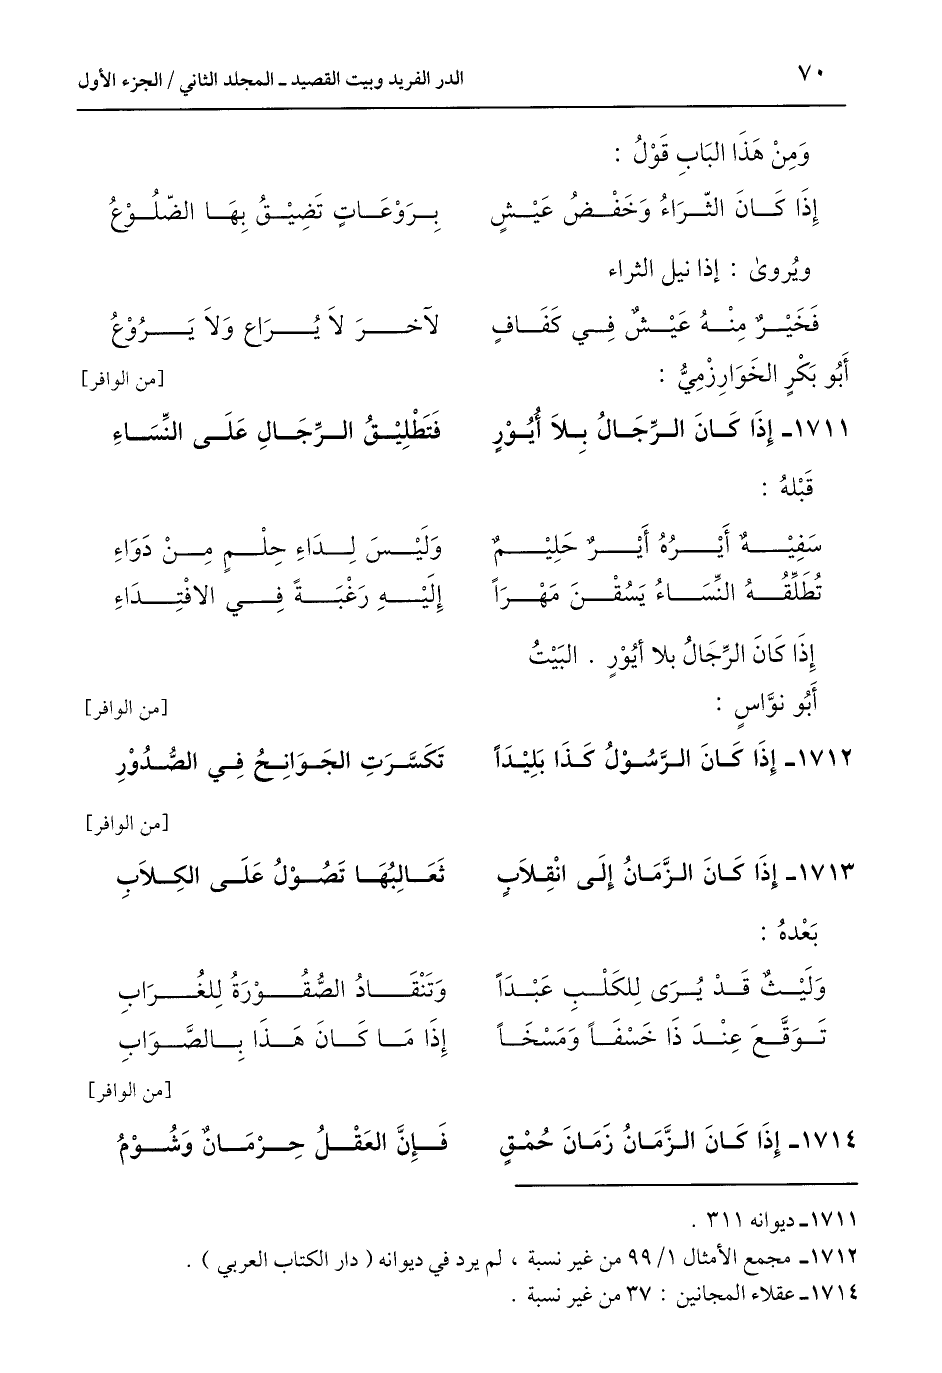 ٧٠ الدر الفريد وبيت القصيد ـ المجلد الثاني / الجزء الأول
وَمِنْ هَذَا البَابِ قَوْلُ :
إِذَا كَانَ الثَّرَاءُ وَخَفْضُ عَيْشٍ بِرَوْعَاتٍ تَضِيْقُ بِهَا الضّلُوْعُ
ويُروىٰ : إذا نيل الثراء
فَخَيْرٌ مِنْهُ عَيْشٌ فِي كَفَافٍ لآخرَ لاَ يُرَاع وَلاَ يَرُوْعُ
أَبُو بَكْرٍ الخَوَارِزْمِيُّ : [من الوافر]
١٧١١ـ إِذَا كَانَ الرِّجَالُ بِلاَ أُيُوْرٍ فَتَطْلِيْقُ الرِّجَالِ عَلَى النِّسَاءِ
قَبْلهُ :
سَفِيْهٌ أَيْرُهُ أَيْرٌ حَلِيْمٌ وَلَيْسَ لِدَاءِ حِلْمٍ مِنْ دَوَاءِ
تُطَلِّقُهُ النِّسَاءُ يَسُقْنَ مَهْرَاً إِلَيْهِ رَغْبَةً فِي الافْتِدَاءِ
إِذَا كَانَ الرِّجَالُ بلا أيُوْرٍ . البَيْتُ
أَبُو نوَّاسٍ : [من الوافر]
١٧١٢ـ إِذَا كَانَ الرَّسُوْلُ كَذَا بَلِيْدَاً تَكَسَّرَتِ الجَوَانِحُ فِي الصُّدُوْرِ
[من الوافر]
١٧١٣ـ إِذَا كَانَ الزَّمَانُ إِلَى انْقِلاَبٍ ثَعَالِبُهَا تَصُوْلُ عَلَى الكِلاَبِ
بَعْدهُ :
وَلَيْثٌ قَدْ يُرَى لِلكَلْبِ عَبْدَاً وَتَنْقَادُ الصُّقُوْرَةُ لِلغُرَابِ
تَوَقَّعَ عِنْدَ ذَا خَسْفَاً وَمَسْخَاً إِذَا مَا كَانَ هَذَا بِالصَّوَابِ
[من الوافر]
١٧١٤ـ إِذَا كَانَ الزَّمَانُ زَمَانَ حُمْقٍ فَإِنَّ العَقْلُ حِرْمَانٌ وَشُوْمُ
١٧١١ـ ديوانه ٣١١ .
١٧١٢ـ مجمع الأمثال ١/ ٩٩ من غير نسبة ، لم يرد في ديوانه ( دار الكتاب العربي ) .
١٧١٤ـ عقلاء المجانين : ٣٧ من غير نسبة .